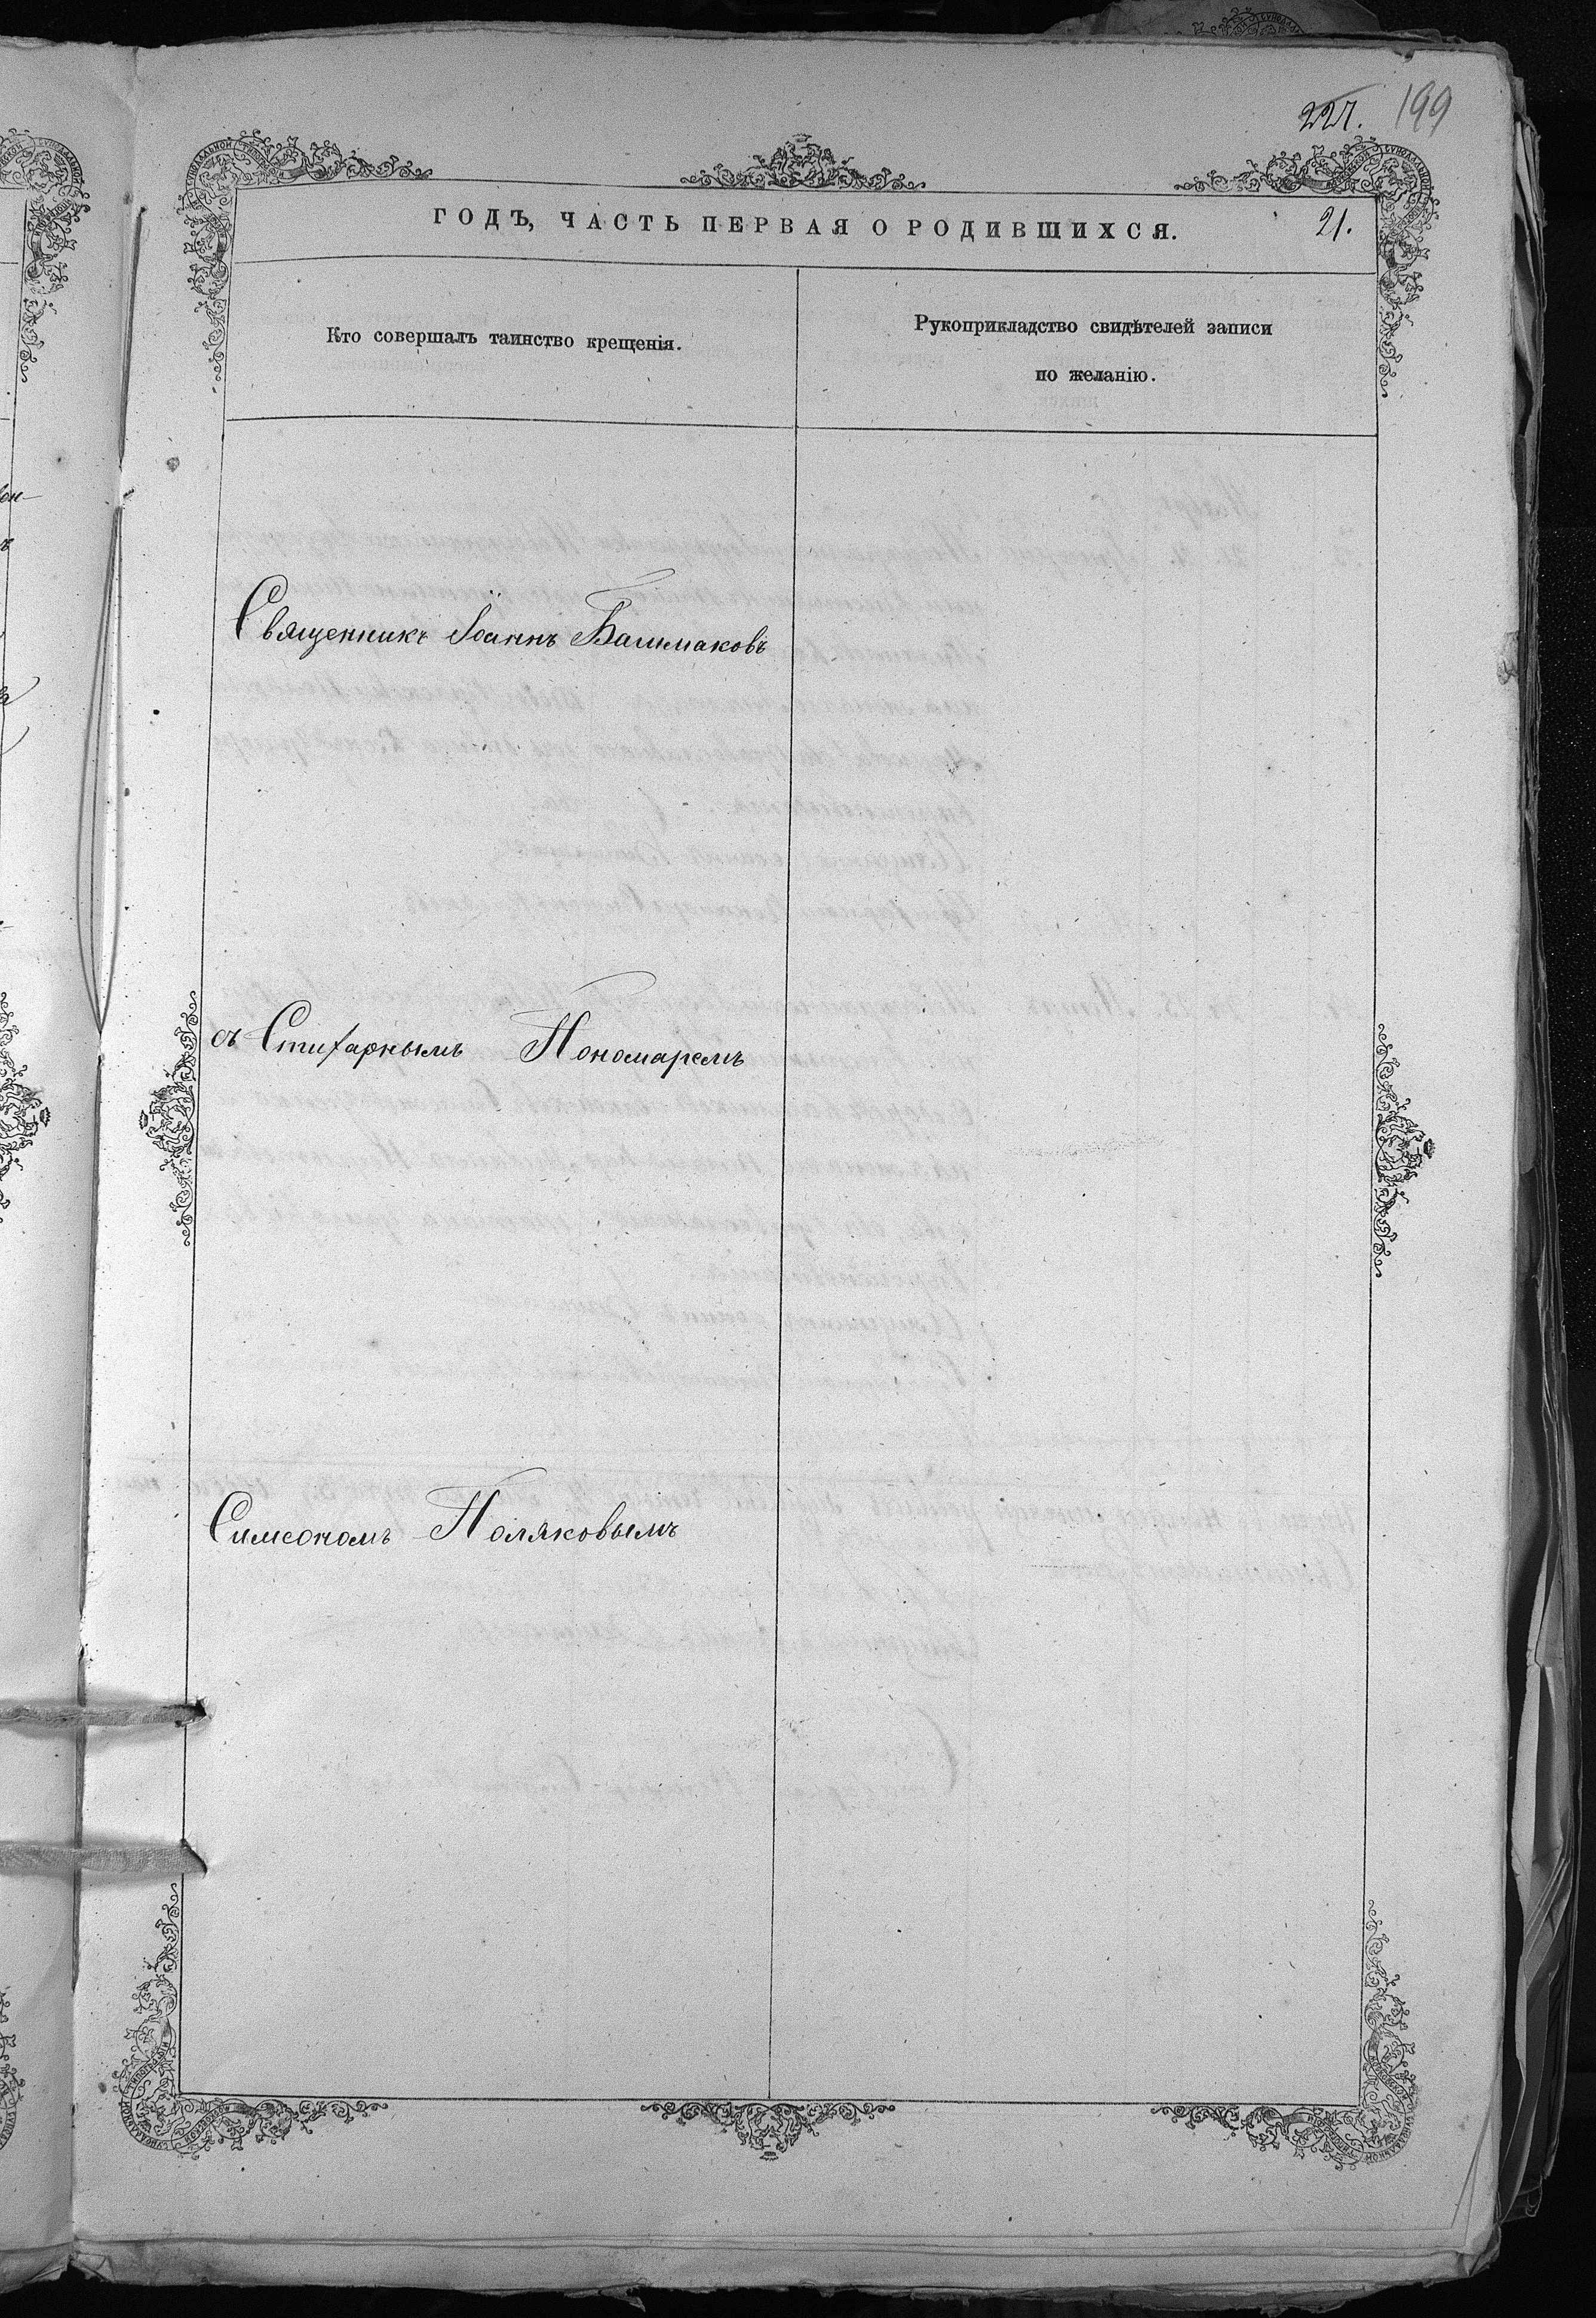 227. 199
ГОДЪ, ЧАСТЬ ПЕРВАЯ О РОДИВШИХСЯ. 21.
Кто совершалъ таинство крещенія.
Рукоприкладство свидѣтелей записи
по желанію.
Священникъ Іоаннъ Башмаковъ
съ Стихарнымъ Пономаремъ
Симеономъ Поляковымъ